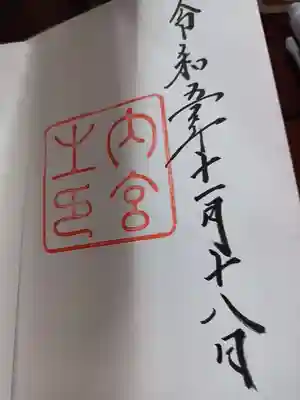 令和五年十一月十八日
内宮
之印